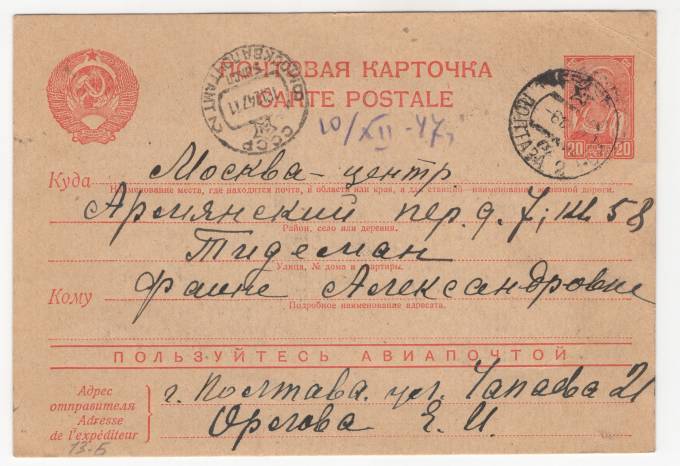 ПОЧТОВАЯ КАРТОЧКА
CARTE POSTALE
10/XII-47,
Москва-центр
Куда
Наименование места, где находится почта, и области или края, а для станций — наименование железной дороги.
Армянский пер. д. 7, кв. 58
Район, село или деревня.
Тидеман
Улица, № дома и квартиры.
Кому
Фаине Александровне
Подробное наименование адресата.
ПОЛЬЗУЙТЕСЬ АВИАПОЧТОЙ
Адрес отправителя
Adresse de l'expéditeur
г. Полтава. ул. Чапаева 21
Орлова Е. И.
20 20
СССР
ПОЛТАВА
13-Б